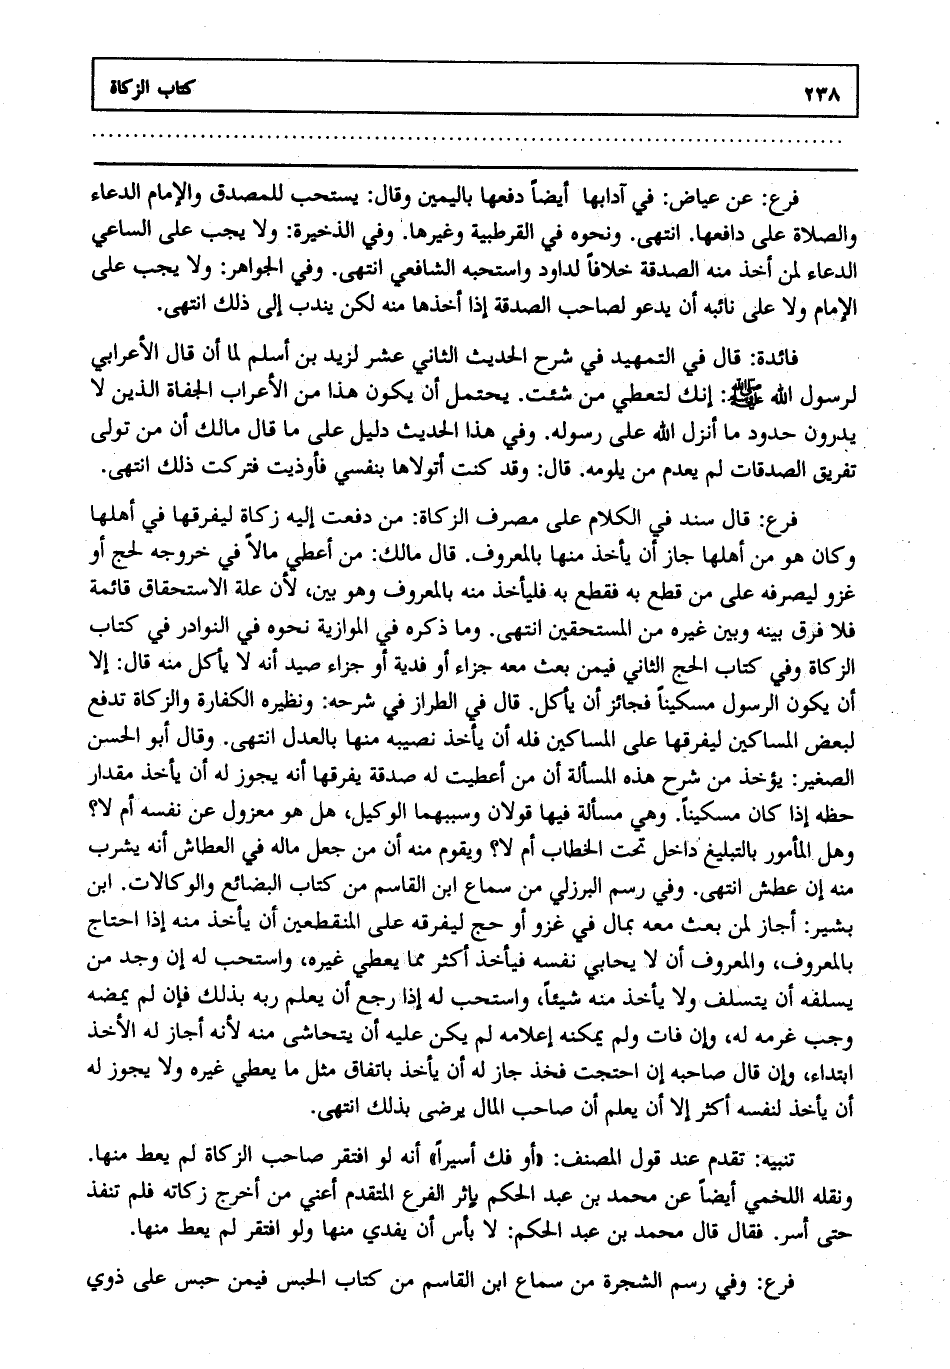 ٢٣٨
كتاب الزكاة
فرع: عن عياض: في آدابها أيضاً دفعها باليمين وقال: يستحب للمصدق والإمام الدعاء
والصلاة على دافعها. انتهى. ونحوه في القرطبية وغيرها. وفي الذخيرة: ولا يجب على الساعي
الدعاء لمن أخذ منه الصدقة خلافاً لداود واستحبه الشافعي انتهى. وفي الجواهر: ولا يجب على
الإمام ولا على نائبه أن يدعو لصاحب الصدقة إذا أخذها منه لكن يندب إلى ذلك انتهى.
فائدة: قال في التمهيد في شرح الحديث الثاني عشر لزيد بن أسلم لما أن قال الأعرابي
لرسول الله ﷺ: إنك لتعطي من شئت. يحتمل أن يكون هذا من الأعراب الجفاة الذين لا
يدرون حدود ما أنزل الله على رسوله. وفي هذا الحديث دليل على ما قال مالك أن من تولى
تفريق الصدقات لم يعدم من يلومه. قال: وقد كنت أتولاها بنفسي فأوذيت فتركت ذلك انتهى.
فرع: قال سند في الكلام على مصرف الزكاة: من دفعت إليه زكاة ليفرقها في أهلها
وكان هو من أهلها جاز أن يأخذ منها بالمعروف. قال مالك: من أعطي مالاً في خروجه لحج أو
غزو ليصرفه على من قطع به فقطع به فليأخذ منه بالمعروف وهو بين، لأن علة الاستحقاق قائمة
فلا فرق بينه وبين غيره من المستحقين انتهى. وما ذكره في الموازية نحوه في النوادر في كتاب
الزكاة وفي كتاب الحج الثاني فيمن بعث معه جزاء أو فدية أو جزاء صيد أنه لا يأكل منه قال: إلا
أن يكون الرسول مسكيناً فجائز أن يأكل. قال في الطراز في شرحه: ونظيره الكفارة والزكاة تدفع
لبعض المساكين ليفرقها على المساكين فله أن يأخذ نصيبه منها بالعدل انتهى. وقال أبو الحسن
الصغير: يؤخذ من شرح هذه المسألة أن من أعطيت له صدقة يفرقها أنه يجوز له أن يأخذ مقدار
حظه إذا كان مسكيناً. وهي مسألة فيها قولان وسببهما الوكيل، هل هو معزول عن نفسه أم لا؟
وهل المأمور بالتبليغ داخل تحت الخطاب أم لا؟ ويقوم منه أن من جعل ماله في العطاش أنه يشرب
منه إن عطش انتهى. وفي رسم البرزلي من سماع ابن القاسم من كتاب البضائع والوكالات. ابن
بشير: أجاز لمن بعث معه بمال في غزو أو حج ليفرقه على المنقطعين أن يأخذ منه إذا احتاج
بالمعروف، والمعروف أن لا يحابي نفسه فيأخذ أكثر مما يعطي غيره، واستحب له إن وجد من
يسلفه أن يتسلف ولا يأخذ منه شيئاً، واستحب له إذا رجع أن يعلم ربه بذلك فإن لم يمضه
وجب غرمه له، وإن فات ولم يمكنه إعلامه لم يكن عليه أن يتحاشى منه لأنه أجاز له الأخذ
ابتداء، وإن قال صاحبه إن احتجت فخذ جاز له أن يأخذ باتفاق مثل ما يعطي غيره ولا يجوز له
أن يأخذ لنفسه أكثر إلا أن يعلم أن صاحب المال يرضى بذلك انتهى.
تنبيه: تقدم عند قول المصنف: «أو فك أسيراً» أنه لو افتقر صاحب الزكاة لم يعط منها.
ونقله اللخمي أيضاً عن محمد بن عبد الحكم بإثر الفرع المتقدم أعني من أخرج زكاته فلم تنفذ
حتى أسر. فقال قال محمد بن عبد الحكم: لا بأس أن يفدي منها ولو افتقر لم يعط منها.
فرع: وفي رسم الشجرة من سماع ابن القاسم من كتاب الحبس فيمن حبس على ذوي